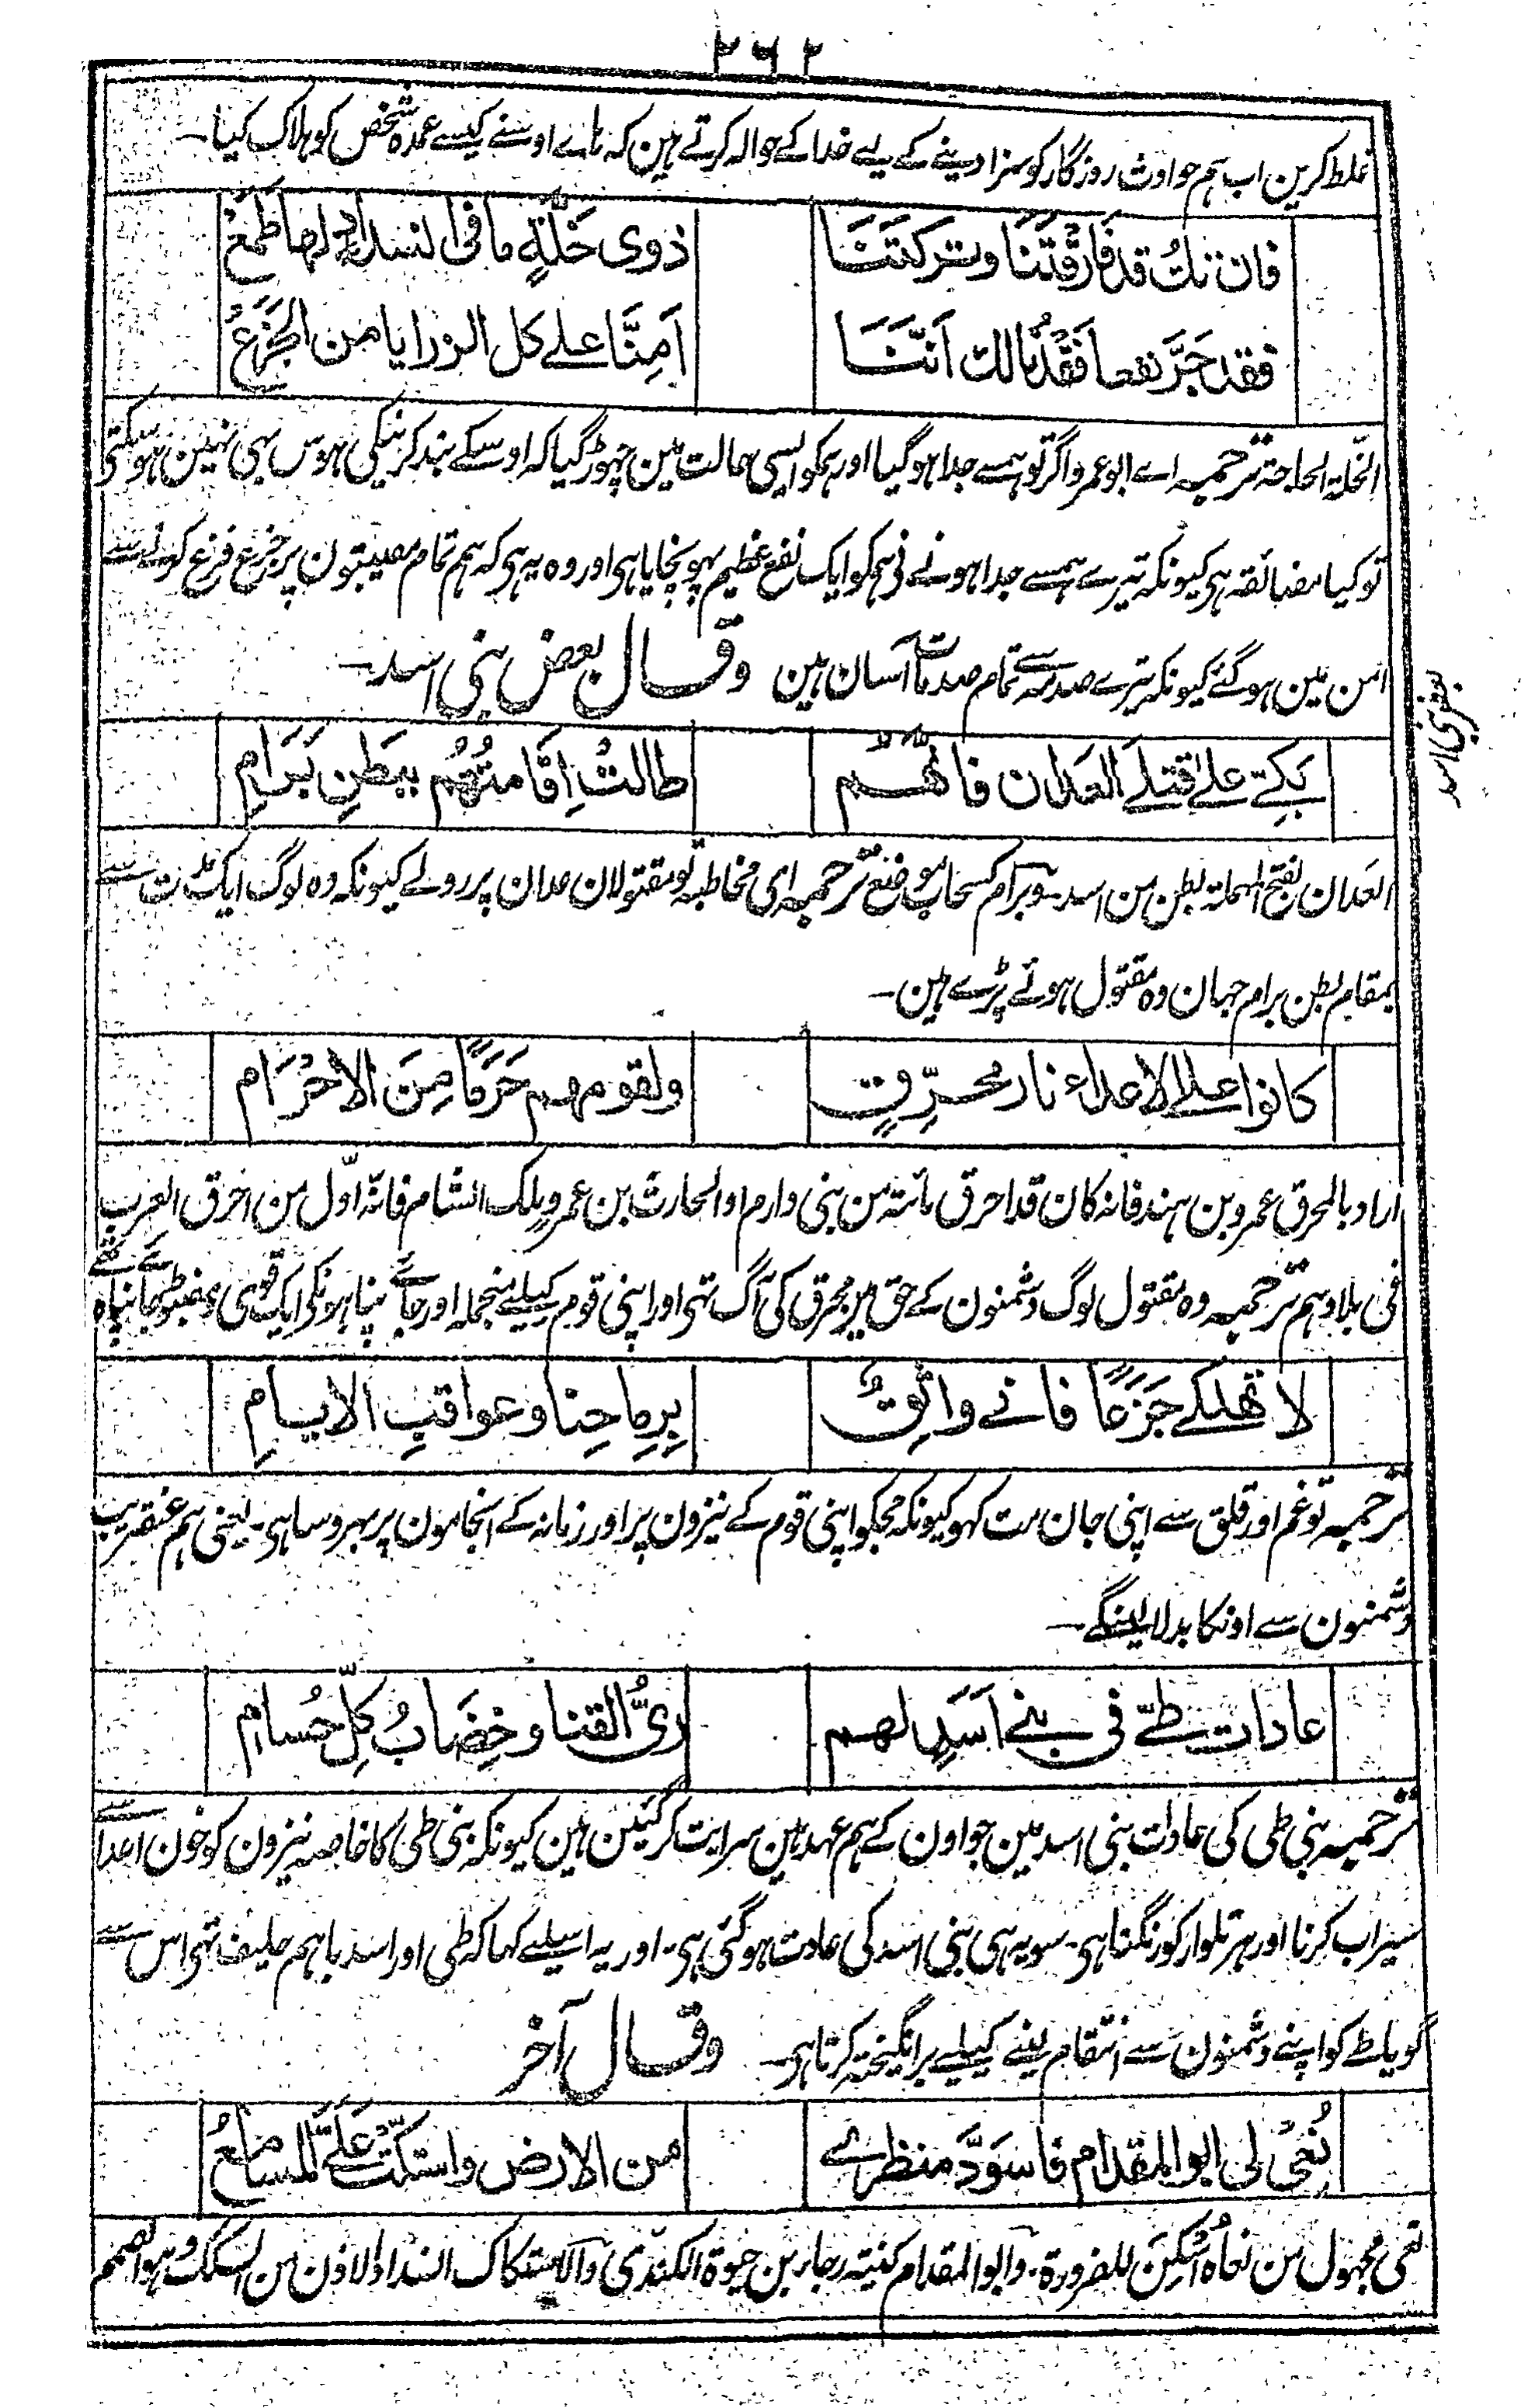 ۲۶۲
غلط کرین اب ہم حوادث روزگار کو سزا دینے کے لیے خدا کے حوالہ کرتے ہین کہ ہاے اوسنے کیسے عمدہ شخص کو ہلاک کیا۔
فان تكُ قد فَارَقْتَنَا وتركتَنَا ذوى خَلَّةٍ ما فى انسدادٍ لها طَمَعْ
فقد جَرَّ نفعا فَقْدُنا لك اَنَّنَا اَمِنَّا على كل الرزايا من الجَزَعْ
الخلّة الحاجة ترجمہ اے ابو عمرو اگر تو ہمسے جدا ہو گیا اور ہمکو ایسی حالت مین چہوڑ گیا کہ اوسکے بند کرنیکی ہوس بہی نہین ہو سکتی
تو کیا مضائقہ ہی کیونکہ تیرے ہمسے جدا ہونے نے ہمکو ایک نفع عظیم پہونچایا ہی اور وہ یہ ہی کہ ہم تمام مصیبتون پر جزع فزع کرنے سے
امن مین ہو گئے کیونکہ تیرے صدمہ سے تمام صدمات آسان ہین وقال بعض بنی اسد۔
بعض بنی اسد
بَكِّى على قتلى العدان فانهم طالتْ اِقامتُهُم ببَطْنِ بَرَامِ
العَدان بفتح المہملة بطن من اسد۔ وبرام کسحاب موضع ترجمہ ای مخاطبہ تو مقتولان عدان پر رولے کیونکہ وہ لوگ ایک مدت سے
بمقام بطن برام جہان وہ مقتول ہوئے پڑے ہین۔
كانوا على الاعداء نار محرِّقٍ ولقومهم حَرَمًا مِنَ الاحْرَام
اراد بالمحرق عمرو بن ہند فانہ کان قد احرق مائة من بنی دارم او الحارث بن عمرو ملک الشام فانّہ اوّل من احرق العرب
فی بلادہم ترجمہ وہ مقتول لوگ دشمنون کے حق مین محرق کی آگ تہی اور اپنی قوم کیلیے منجملہ اور جاے پناہونکی ایک قوی و مضبوط جاے پناہ تہے
لا تهلكى جَزَعًا فانى واثِقٌ بِرِماحِنا وعواقبِ الايامِ
ترجمہ تو غم اور قلق سے اپنی جان مت کہو کیونکہ مجکو اپنی قوم کے نیزون پر اور زمانہ کے انجامون پر بہروسا ہی۔ یعنی ہم عنقریب
دشمنون سے اونکا بدلا لینگے۔
عادات طىّ فى بنى اَسَدٍ لهم رىُّ القنا وخِضَابُ كلِّ حُسام
ترجمہ بنی طی کی عادات بنی اسد مین جو اون کے ہم عہد ہین سرایت کر گئین ہین کیونکہ بنی طی کا خاصہ نیزون کو خون اعدا سے
سیراب کرنا اور ہر تلوار کو رنگنا ہی۔ سو یہ ہی بنی اسد کی عادت ہو گئی ہی۔ اور یہ اسلیے کہا کہ طی اور اسد باہم حلیف تہی اس سے
گویا طے کو اپنے دشمنون سے انتقام لینے کیلیے برانگیختہ کرتا ہی۔ وقال آخر
نُعِىْ لى ابو المقدام فاسوَدَّ منظرى من الارض واستكّت عَلَىَّ المسامعُ
نعی مجہول من نعاہ اُسکِن للضرورة۔ وابو المقدام کنیة رجاء بن حیوة الکندی والاستکاک انسداد الاذن من السکک وہو الصمم